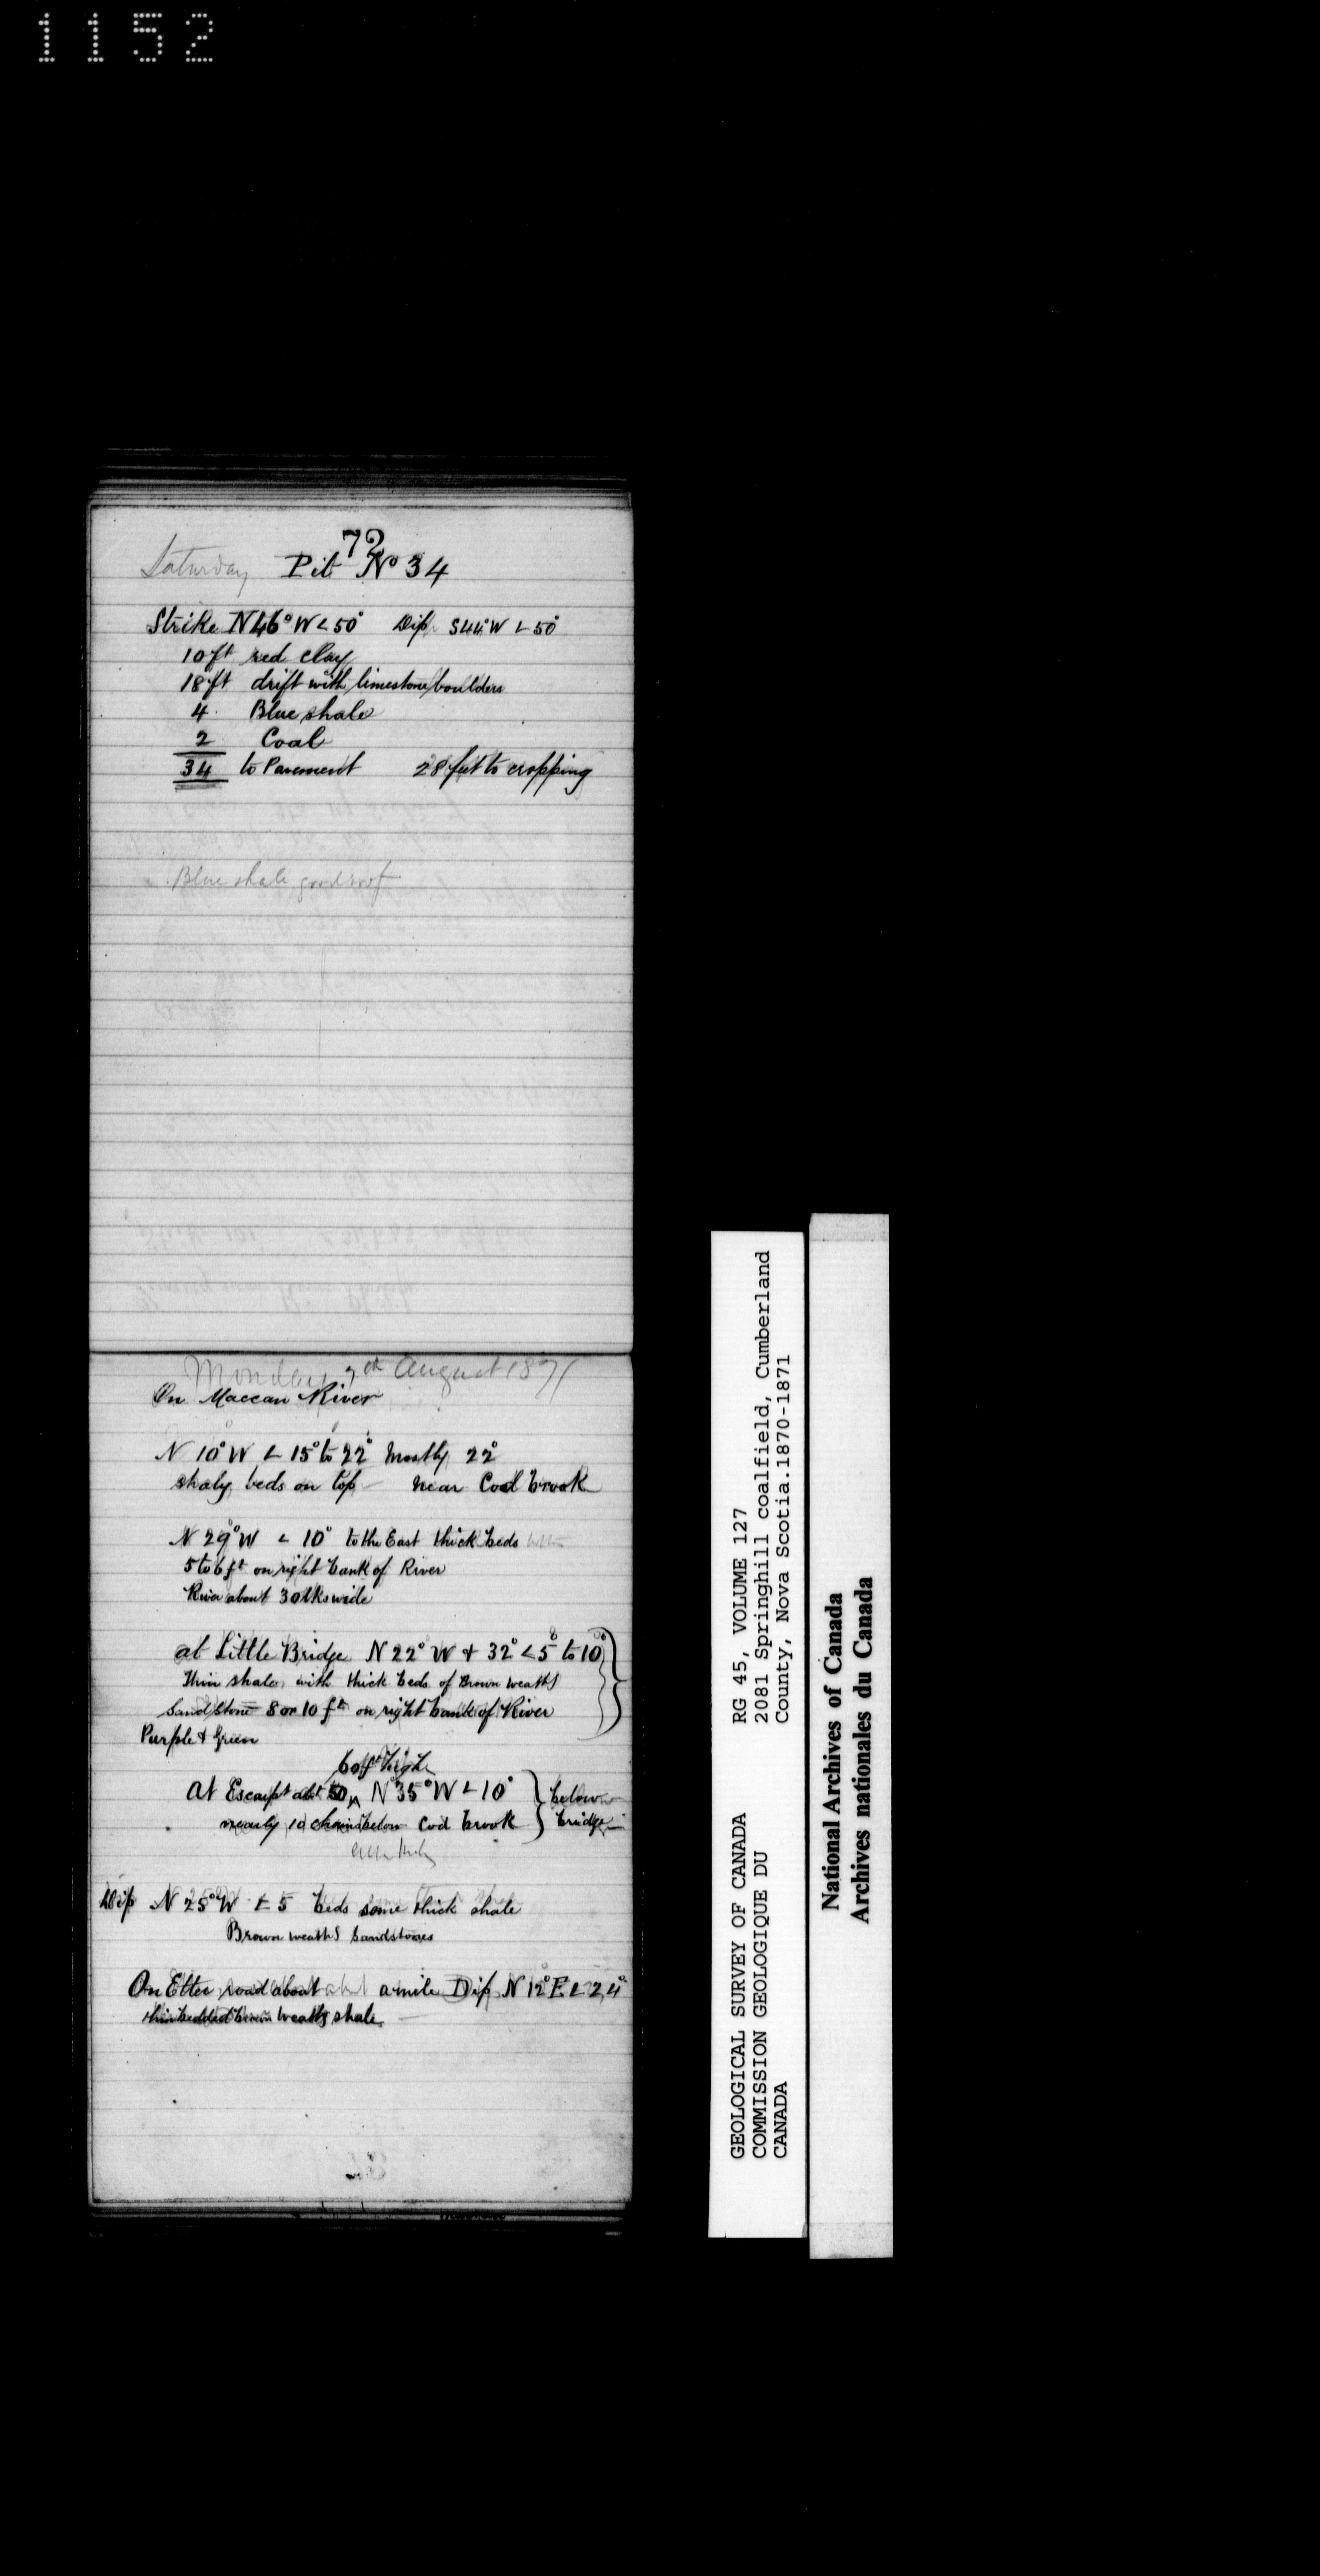 1152
72
Saturday Pit No 34
Strike N46°W ∠ 50° Dip S44°W ∠ 50°
10 ft red clay
18 ft drift with limestone boulders
4 Blue shale
2 Coal
34 to Pavement 28 feet to cropping
Blue shale good roof
Monday 7th August 1871
On Maccan River
N 10° W ∠ 15° to 22° Mostly 22°
shaly beds on top near Coal brook
N 29° W ∠ 10° to the East thick beds
5 to 6 ft on right bank of River
River about 30 lks wide
at Little Bridge N 22° W & 32° ∠ 5° to 10°
Thin shale with thick beds of Brown weathd
Sandstone 8 or 10 ft on right bank of River
Purple & Green
60 ft high
At Escarpt abt 50 N 35° W ∠ 10° below
nearly 10 chains below Coal brook bridge
Dip N 25° W ∠ 5 beds some thick shale
Brown weathd Sandstones
On Etter road about a mile Dip N 12° E ∠ 24°
thin bedded brown weathg shale
GEOLOGICAL SURVEY OF CANADA RG 45, VOLUME 127
COMMISSION GEOLOGIQUE DU 2081 Springhill coalfield, Cumberland
CANADA County, Nova Scotia.1870-1871
National Archives of Canada
Archives nationales du Canada